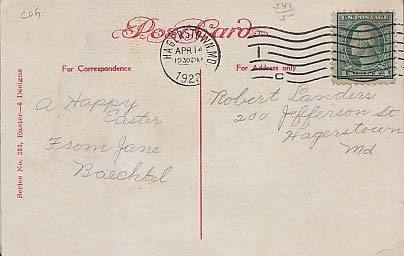 COG
Post Card
HAGERSTOWN, MD.
APR 14
12:30 PM
1922
U.S. POSTAGE
For Correspondence
For Address only
A Happy
Easter
From Jane
Baechtel
Robert Landers
200 Jefferson St
Hagerstown
Md
Section No. 233, Easter—6 Designs